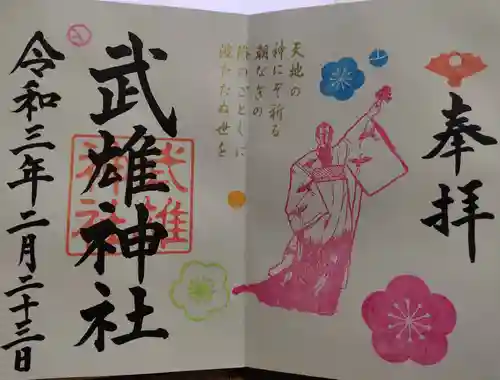 奉拝
天地の
神にぞ祈る
朝なぎの
海のごとくに
波たたぬ世を
武雄神社
武雄
神社
令和三年二月二十三日